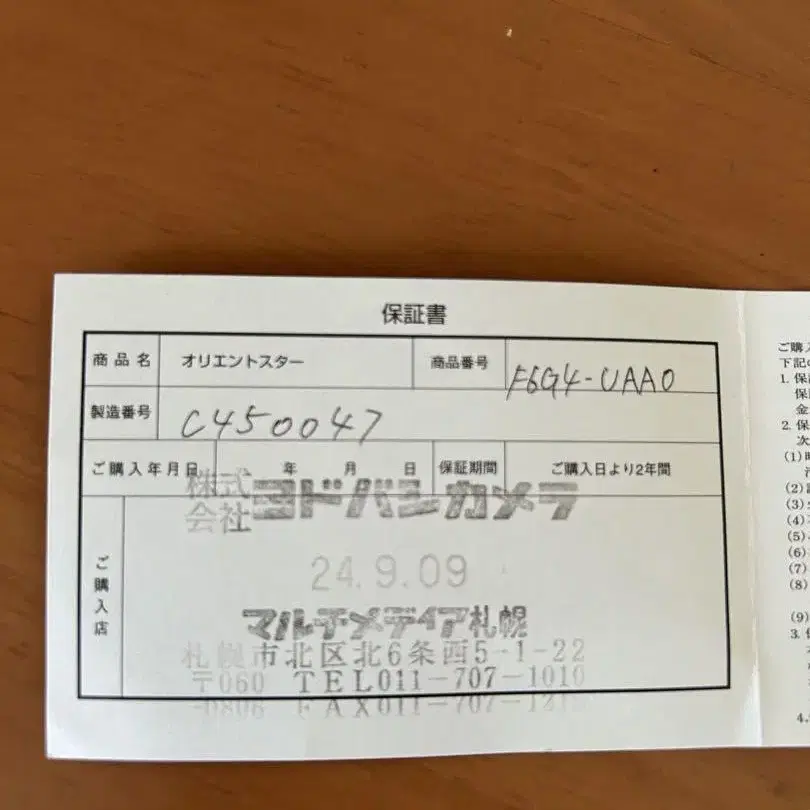 保証書
商品名 オリエントスター 商品番号 F6G4-UAA0
製造番号 C450047
ご購入年月日 年 月 日 保証期間 ご購入日より2年間
ご購入店
株式会社ヨドバシカメラ
24.9.09
マルチメディア札幌
札幌市北区北6条西5-1-22
〒060 TEL011-707-1010
-0806 FAX011-707-
ご購入
下記の
1. 保
保
金
2. 保
次
(1)
(2)
(3)
(4)
(5)
(6)
(7)
(8)
(9)
3.
4.